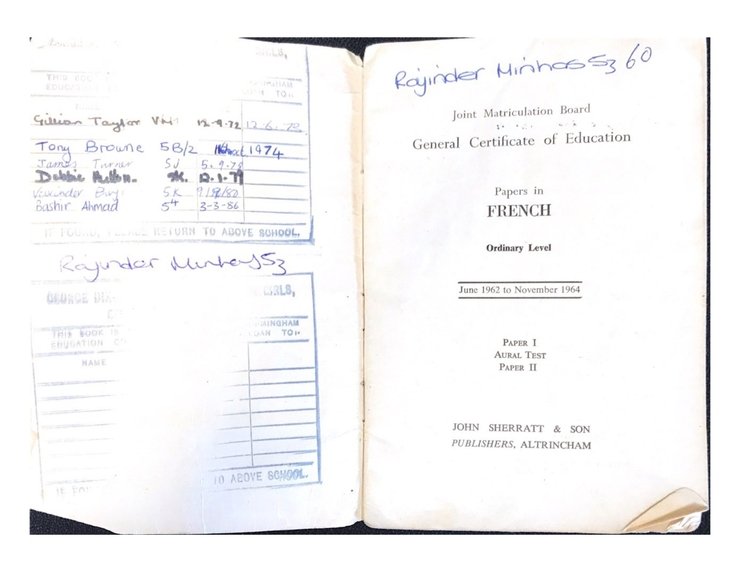 GIRLS,
THIS BOOK
EDUCATION
MINGHAM
TO:-
Gillian Taylor 12-9-72 12-6-73
Tony Browne 5B/2 1974
James Turner 5J 5.9.78
Debbie 12.1.79
5K
Bashir Ahmad 5H 3-3-86
IF FOUND, PLEASE RETURN TO ABOVE SCHOOL.
Rajinder Minhas 5z
GEORGE DIX GIRLS,
THIS BOOK IS MINGHAM
EDUCATION CO OAN TO:-
NAME
IF FOU TO ABOVE SCHOOL.
Rajinder Minhas 5z 60
Joint Matriculation Board
General Certificate of Education
Papers in
FRENCH
Ordinary Level
June 1962 to November 1964
PAPER I
AURAL TEST
PAPER II
JOHN SHERRATT & SON
PUBLISHERS, ALTRINCHAM